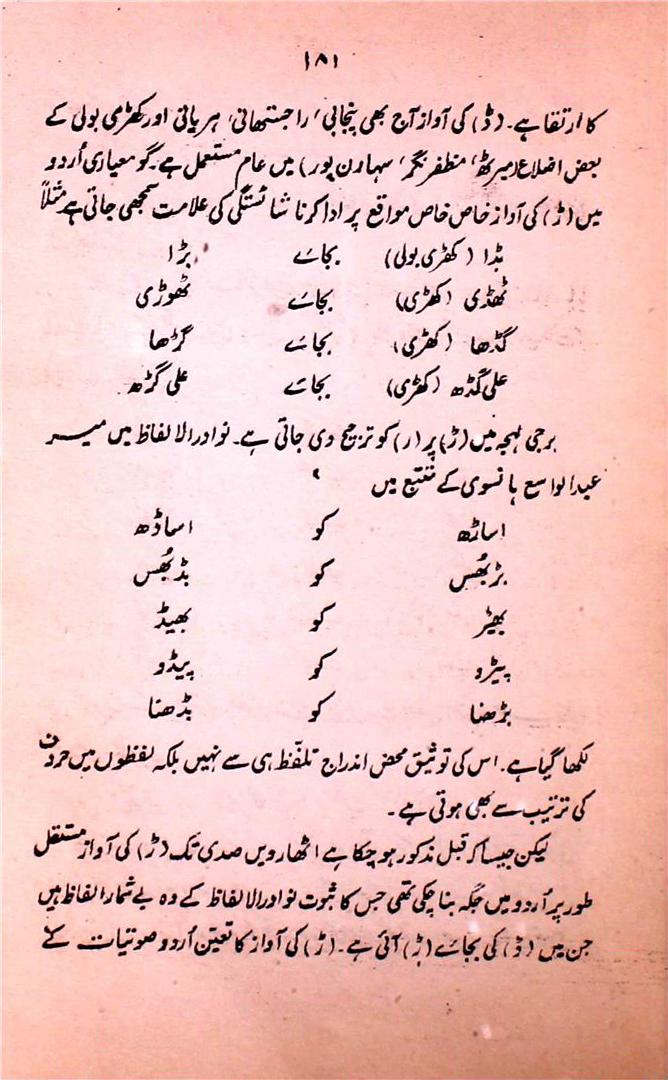 ۱۸۱
کا ارتقا ہے۔ (ڈ) کی آواز آج بھی پنجابی، راجستھانی، ہریانی اور کھڑی بولی کے
بعض اضلاع (میرٹھ، مظفر نگر، سہارن پور) میں عام مستعمل ہے۔ گو معیاری اُردو
میں (ڑ) کی آواز خاص خاص مواقع پر ادا کرنا شائستگی کی علامت سمجھی جاتی ہے مثلاً
بڈا (کھڑی بولی) بجائے بڑا
ٹھڈی (کھڑی) بجائے ٹھوڑی
گڈھا (کھڑی) بجائے گڑھا
علی گڈھ (کھڑی) بجائے علی گڑھ
برجی لہجہ میں (ڑ) پر (ر) کو ترجیح دی جاتی ہے۔ نوادر الالفاظ میں میر
عبدالواسع ہانسوی کے تتبع میں
اساڑھ کو اساڈھ
بڑبھُس کو بڈبھُس
بھیڑ کو بھیڈ
پیڑو کو پیڈو
بڑھنا کو بڈھنا
لکھا گیا ہے۔ اس کی توثیق محض اندراج تلفّظ ہی سے نہیں بلکہ لفظوں میں حروف
کی ترتیب سے بھی ہوتی ہے۔
لیکن جیسا کہ قبل مذکور ہو چکا ہے اٹھارویں صدی تک (ڑ) کی آواز مستقل
طور پر اُردو میں جگہ بنا چکی تھی جس کا ثبوت نوادر الالفاظ کے وہ بے شمار الفاظ ہیں
جن میں (ڈ) کی بجائے (ڑ) آئی ہے۔ (ڑ) کی آواز کا تعیّن اُردو صوتیات کے